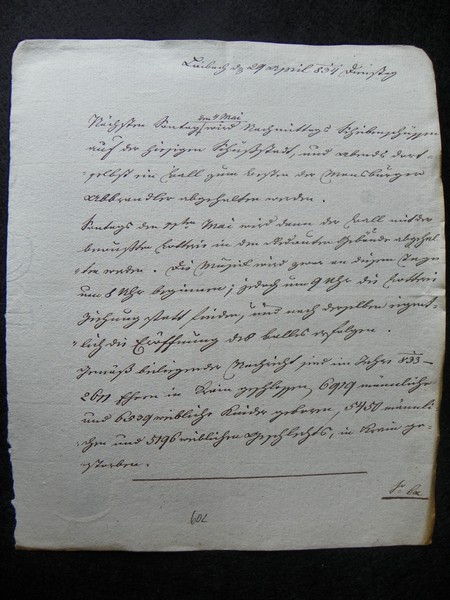 Laibach den 29 April 834 Dienstag
den 4 Mai
Nächsten Sontag wird Nachmittags Scheibenschüßen
auf der hiesigen Schußstadt, und abends dort-
selbst ein Ball zum besten der Mansbürger
Abbrandler abgehalten werden.
Sontags den 11ten Mai wird dann der Ball mit der
bewußten Lotterie in dem Redouten Gebäude abgehal-
ten werden. Die Musik wird zwar an diesem Tage
um 8 Uhr beginnen; jedoch um 9 Uhr die Lotterie
Ziehung statt finden, und nach derselben eigent-
lich die Eröffnung des Balles erfolgen.
Gemäß beiliegender Nachricht sind im Jahre 833
Ehen in Krain geschlossen, 6919 männliche
und 6539 weibliche Kinder geboren, 5450 männli-
chen und 5196 weiblichen Geschlechts, in Krain ge-
storben.
602